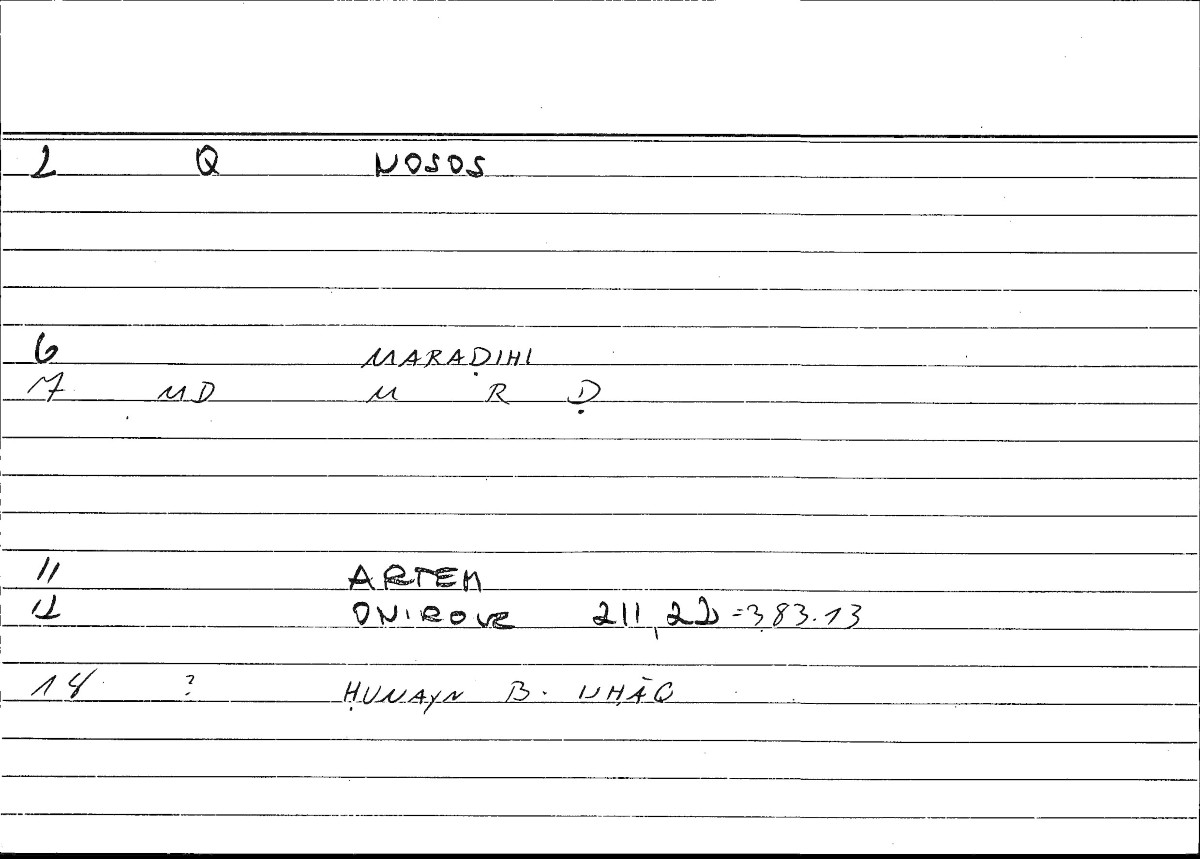 2 Q NOSOS
6 MARAḌIHI
7 MD M R Ḍ
11 ARTEM
12 ONIROCR 211,22=383.13
14 ? ḤUNAYN B. ISḤĀQ